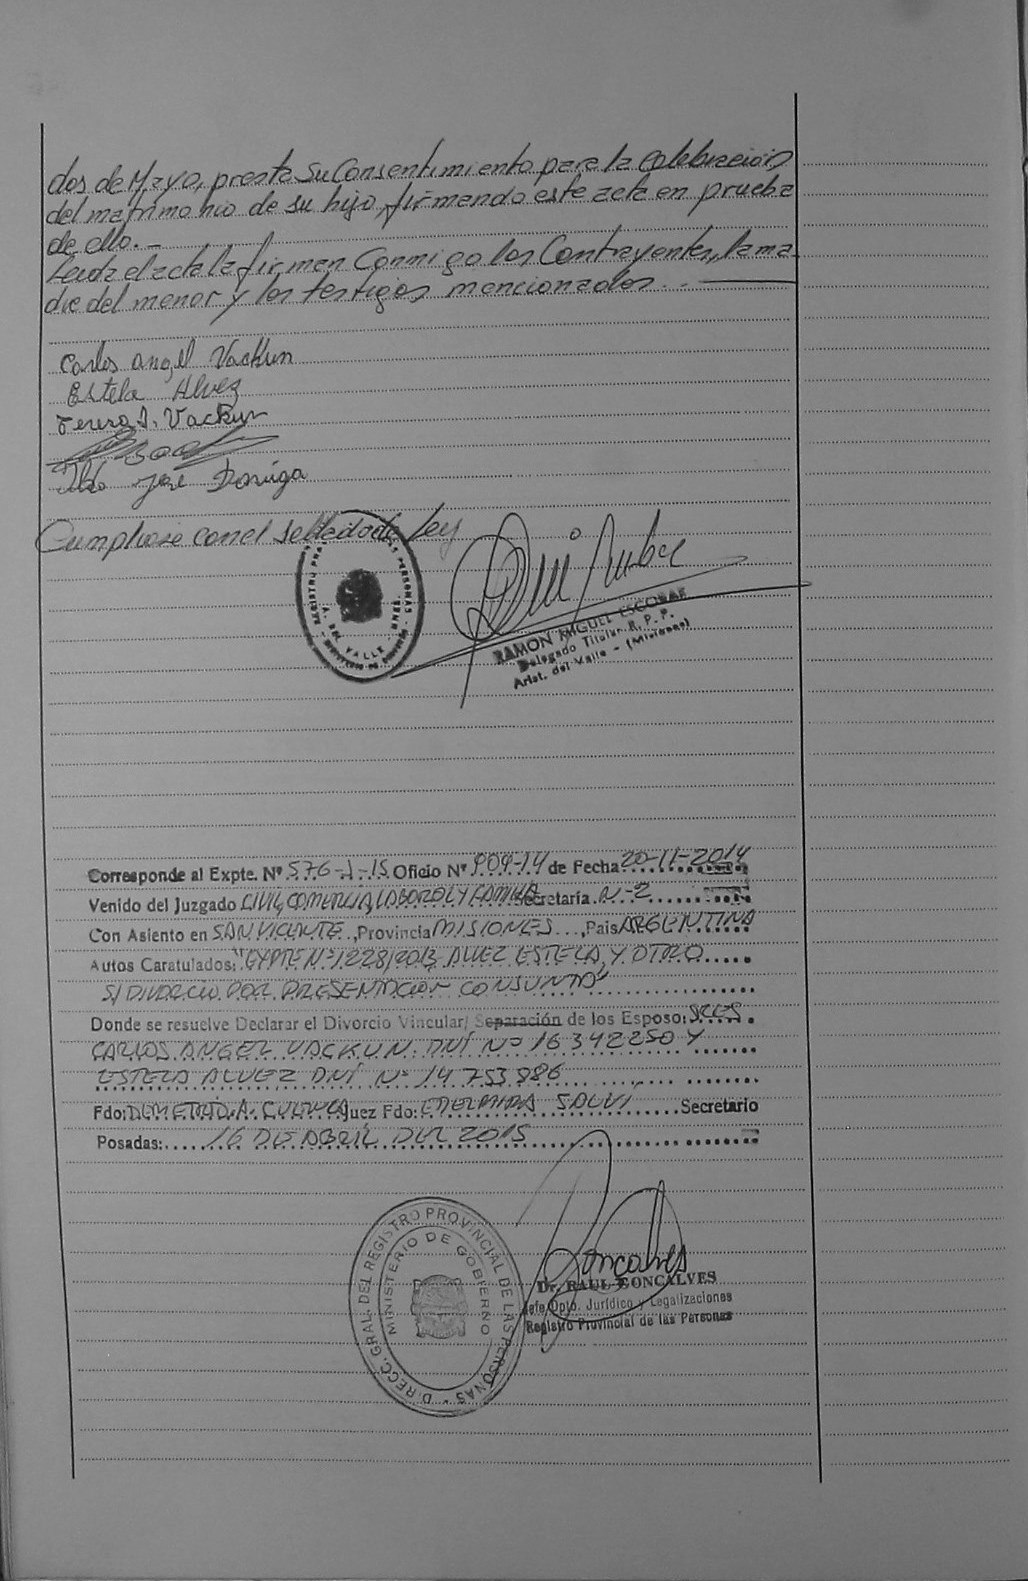 dos de Mayo, presta su Consentimiento para la celebración
del matrimonio de su hijo, firmando este acta en prueba
de ello. -
Leida el acta la firman Conmigo los Contrayentes, la ma
dre del menor y los testigos mencionados. -
Carlos Angel Vackun
Estela Alvez
Teresa I. Vackun
José
Cumpliose con el Sellado de Ley
REGISTRO PROVINCIAL DE LAS PERSONAS
A. DEL VALLE
RAMON MIGUEL ESCOBAR
Delegado Titular R. P. P.
Arist. del Valle - (Misiones)
Corresponde al Expte. Nº 576-J-15 Oficio Nº 904-14 de Fecha 20-11-2014
Venido del Juzgado CIVIL, COMERCIAL, LABORAL Y FAMILIA Secretaría N-2
Con Asiento en SAN VICENTE, Provincia MISIONES, Pais ARGENTINA
Autos Caratulados: "EXPTE Nº 1228/2013 ALVEZ ESTELA Y OTRO
S/ DIVORCIO POR PRESENTACION CONJUNTA"
Donde se resuelve Declarar el Divorcio Vincular/ Separación de los Esposo: SRES
CARLOS ANGEL VACKUN DNI Nº 16342250 Y
ESTELA ALVEZ DNI Nº 14.753.986
Fdo: DEMETRIO A. Juez Fdo: EDELMIRA Secretario
Posadas: 16 DE ABRIL DEL 2015
DIRECC. GRAL. DEL REGISTRO PROVINCIAL DE LAS PERSONAS
MINISTERIO DE GOBIERNO
Goncalves
Dr. RAUL GONCALVES
Jefe Dpto. Jurídico y Legalizaciones
Registro Provincial de las Personas